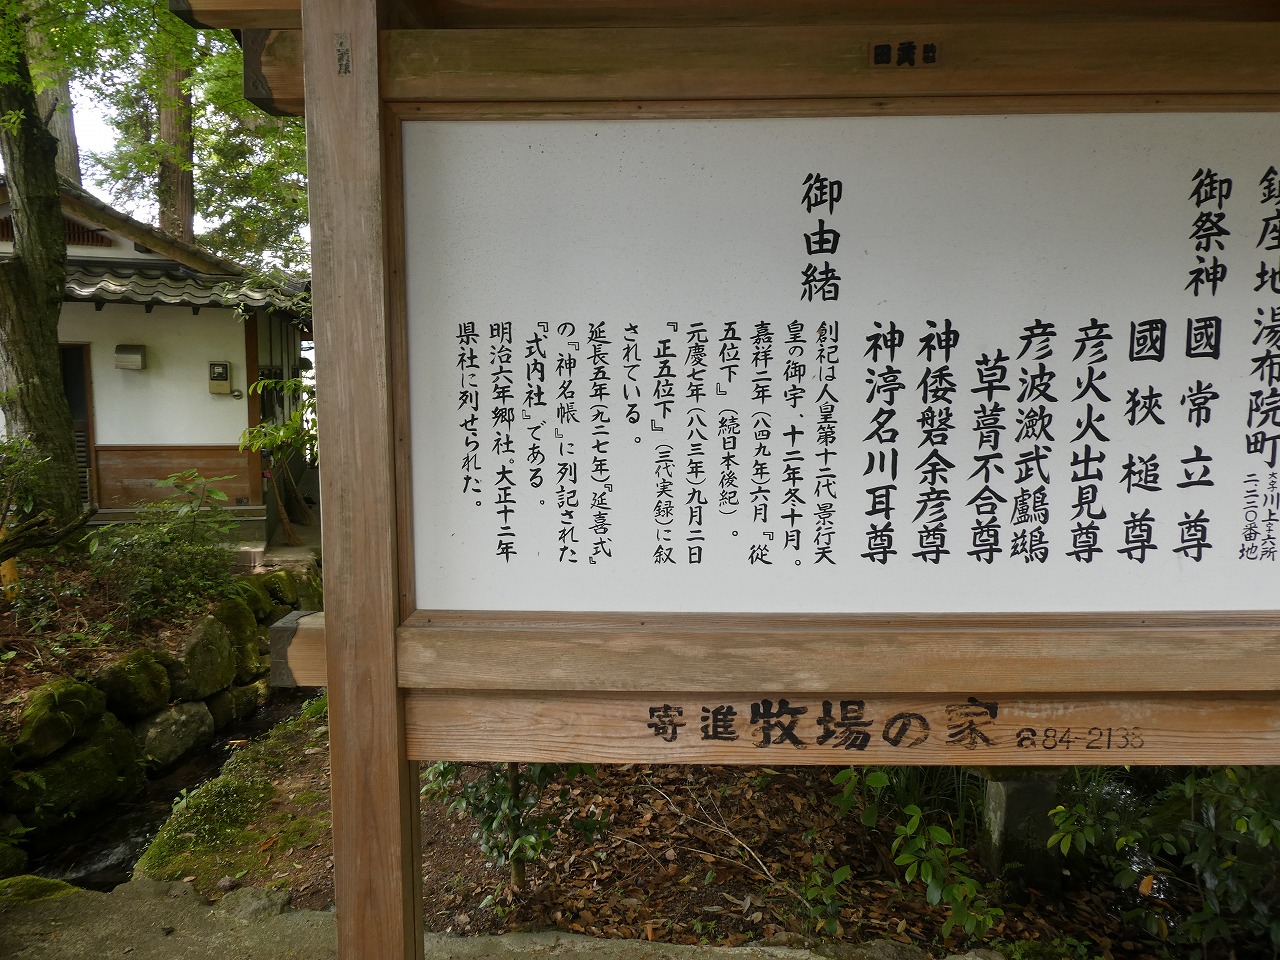 鎮座地 湯布院町 大字川上字六所
二、二二〇番地
御祭神 國常立尊
國狹槌尊
彦火火出見尊
彦波瀲武鸕鷀
草葺不合尊
神倭磐余彦尊
神渟名川耳尊
御由緒
創祀は人皇第十二代景行天
皇の御宇、十二年冬十月。
嘉祥二年(八四九年)六月『從
五位下』(続日本後紀)。
元慶七年(八八三年)九月二日
『正五位下』(三代実録)に叙
されている。
延長五年(九二七年)『延喜式』
の『神名帳』に列記された
『式内社』である。
明治六年郷社。大正十二年
県社に列せられた。
寄進 牧場の家 ☎84-2138